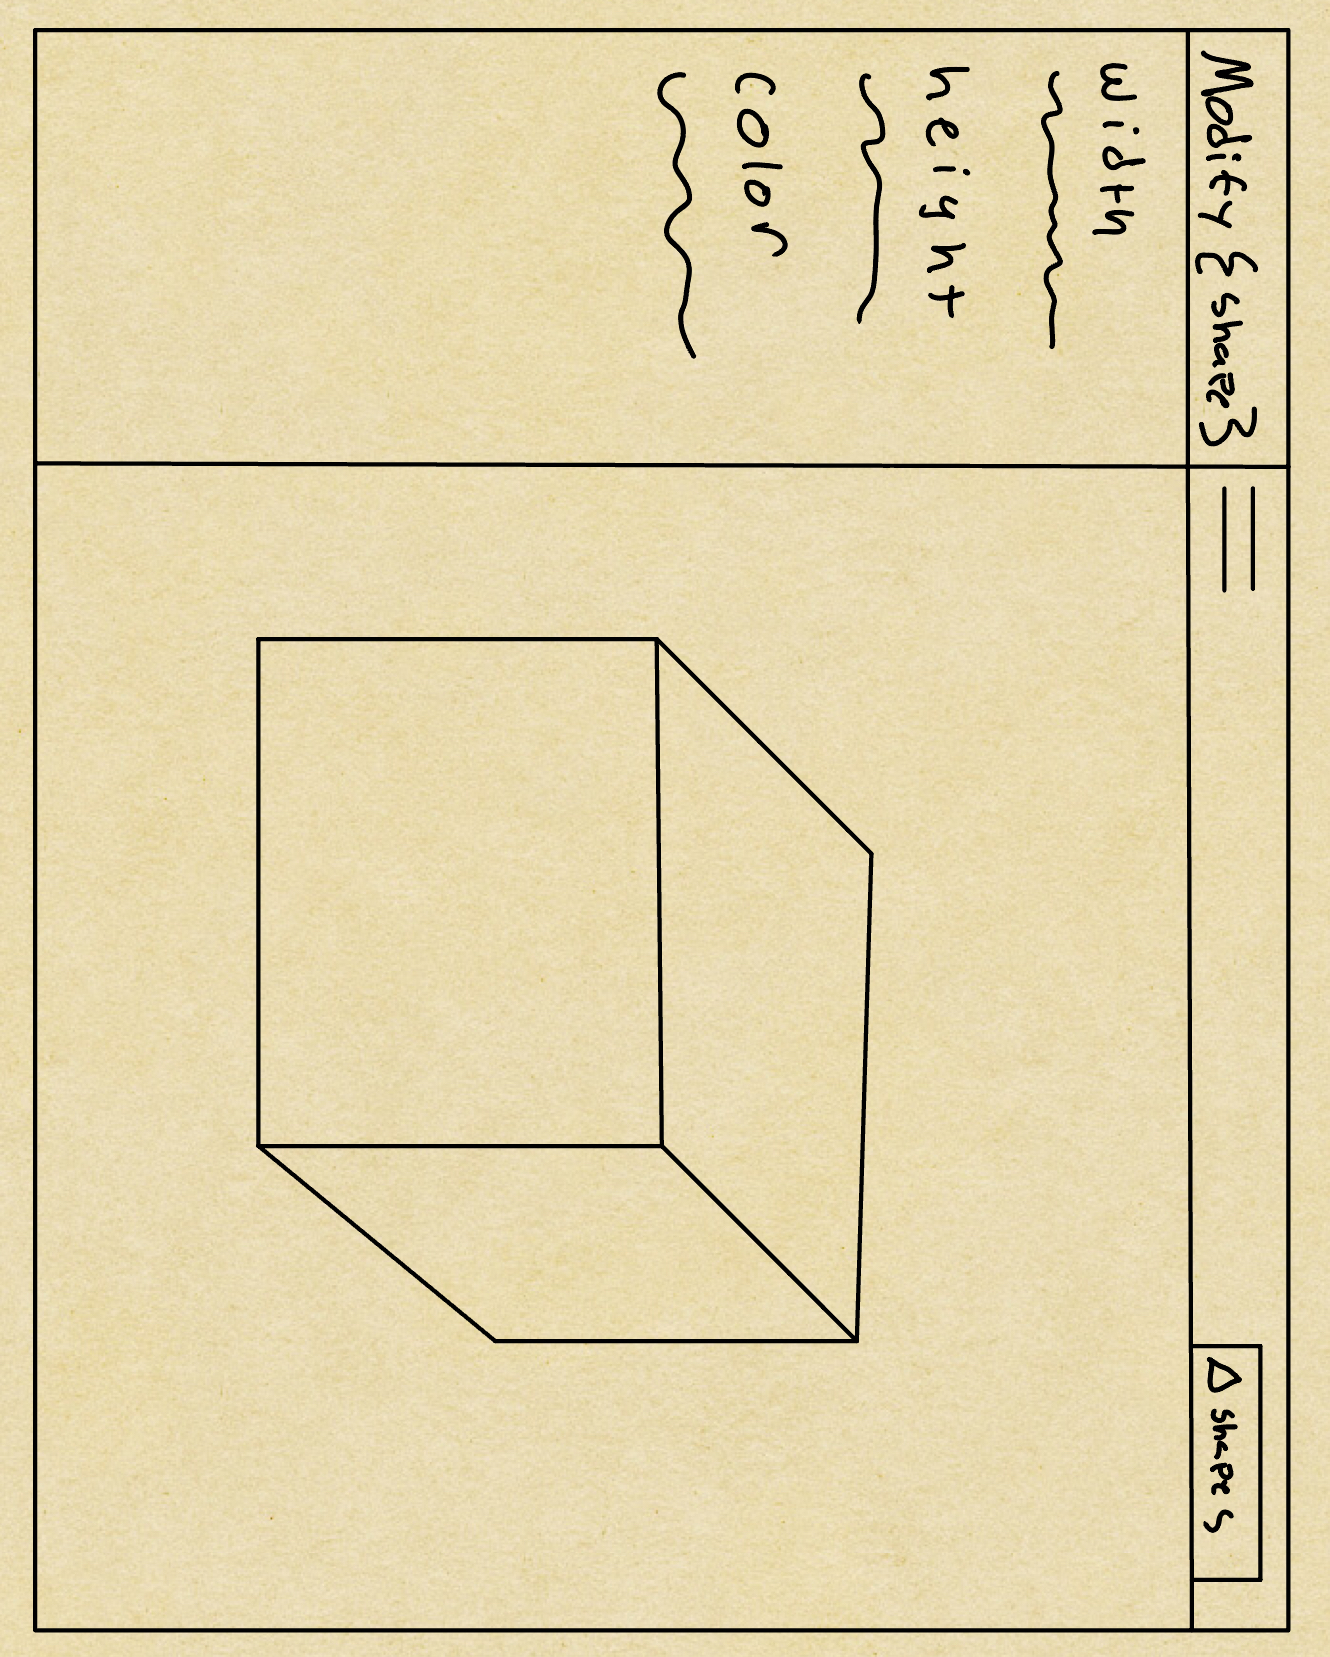 Modify {shape}
△ shapes
width
height
color